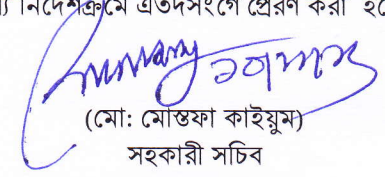 নির্দেশক্রমে এতদসংগে প্রেরণ করা
(মো: মোস্তফা কাইয়ুম)
সহকারী সচিব